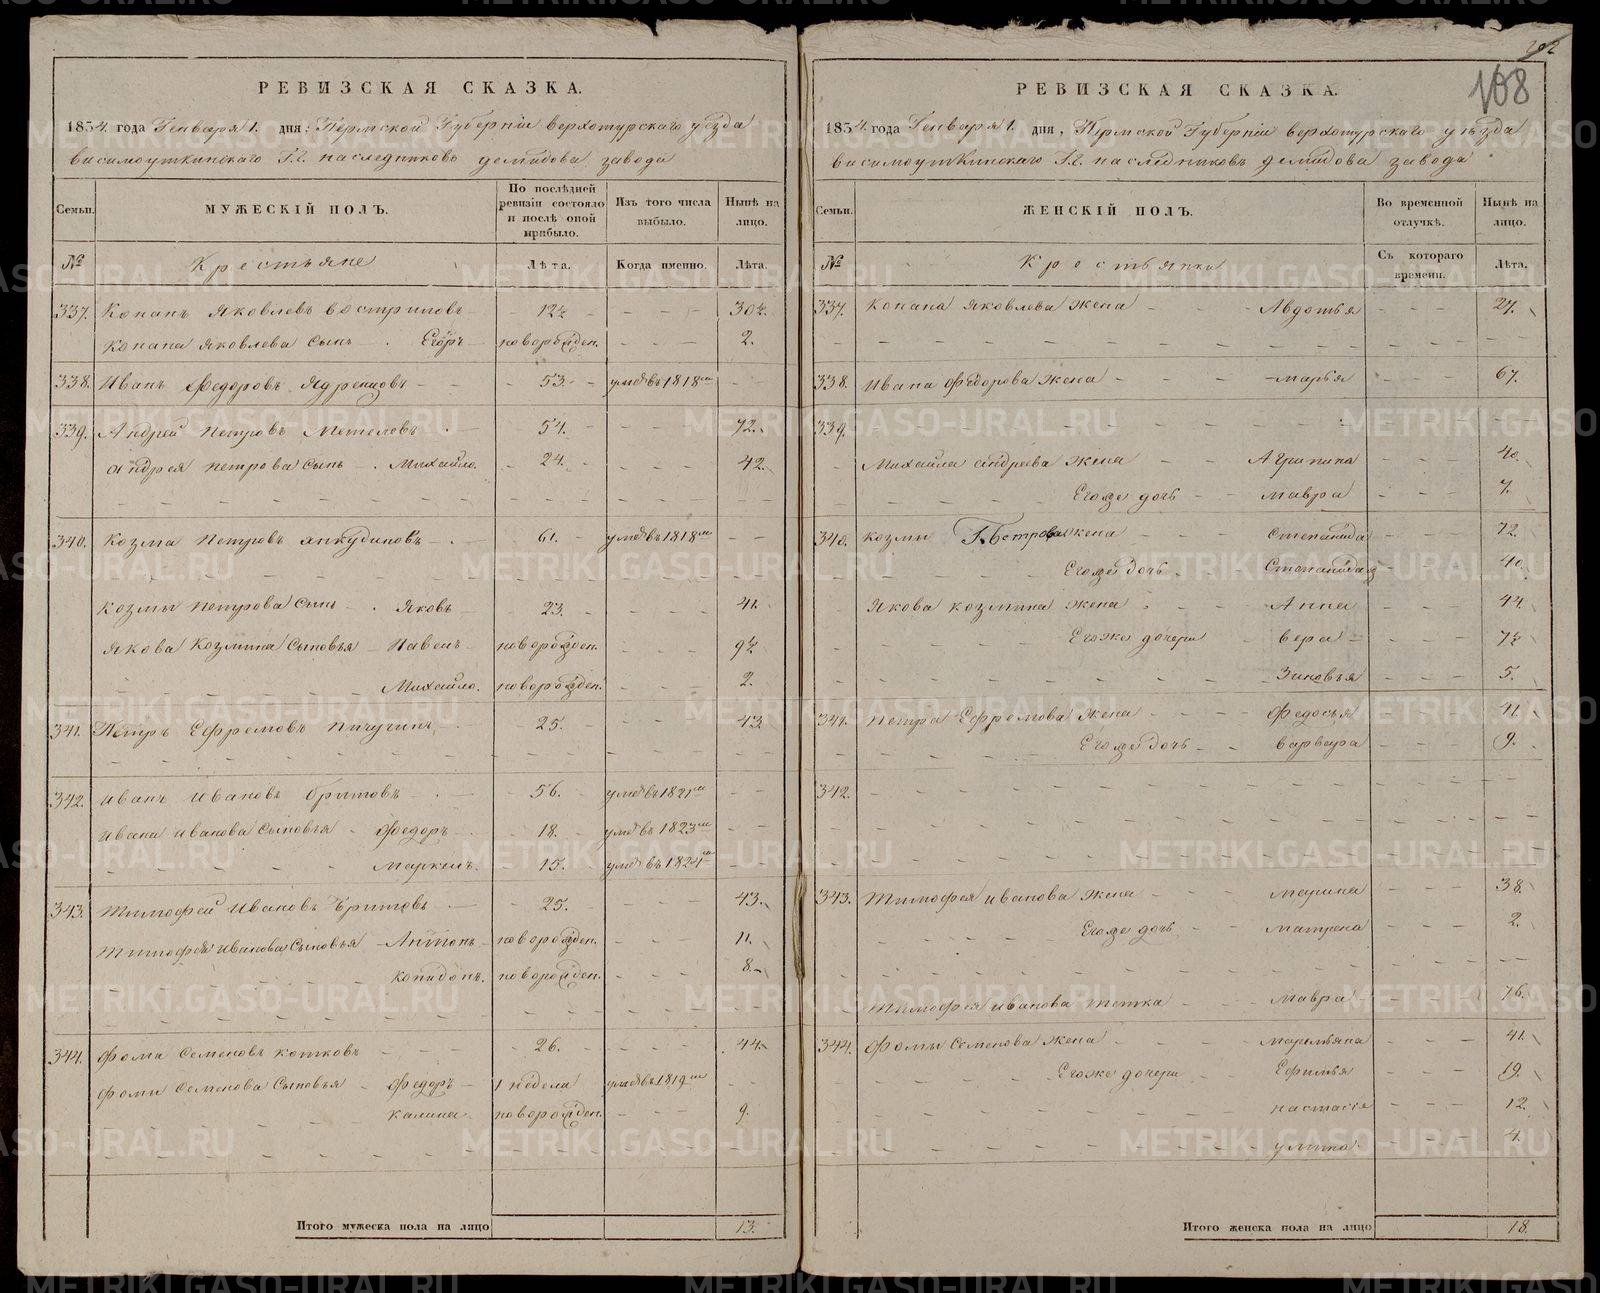 202
108
РЕВИЗСКАЯ СКАЗКА.
1834. года Генваря 1. дня; Пермской Губернiи верхотурскаго уѣзда
висимоуткинскаго Г.Г. наследниковъ демидова завода
Семьи. МУЖЕСКIЙ ПОЛЪ. По послѣдней ревизiи состояло и послѣ оной прибыло. Изъ того числа выбыло. Нынѣ на лицо.
№ Крестьяне Лѣта. Когда именно. Лѣта.
337. Конанъ Яковлевъ востриковъ 12½ 30½.
Конана Яковлева сынъ Егоръ новорожден. 2.
338. Иванъ Федоровъ Ядренцовъ 53. умеръ въ 1818м
339. Андрей Петровъ Метелевъ 54. 72.
андрея петрова сынъ Михайло. 24. 42.
340. Козма Петровъ анкудиновъ 61. умеръ въ 1818м
Козмы петрова сынъ Яковъ 23. 41.
Якова Козмина сыновья Павелъ новорожден. 9½
Михайло. новорожден. 2.
341. Петръ Ефремовъ Пичугинъ 25. 43.
342. иванъ ивановъ бритовъ 56. умеръ въ 1821м
ивана иванова сыновья Федоръ 18. умеръ въ 1823м
Маркелъ. 15. умеръ въ 1824м
343. Тимофей Ивановъ бритовъ 25. 43.
Тимофея иванова сыновья Антонъ новорожден. 11.
новорожден. 8.
344. Фома Семеновъ котковъ 26. 44.
фомы семенова сыновья Федоръ 1 недели умеръ въ 1819м
калина новорожден. 9.
Итого мужеска пола на лицо 13.
РЕВИЗСКАЯ СКАЗКА.
1834. года Генваря 1. дня, Пермской Губернiи верхотурскаго уѣзда
висимоуткинскаго Г.Г. наследниковъ демидова завода
Семьи. ЖЕНСКIЙ ПОЛЪ. Во временной отлучкѣ. Нынѣ на лицо.
№ Крестьянки Съ котораго времени. Лѣта.
337. Конана Яковлева жена Авдотья 27.
338. Ивана Федорова жена марья 67.
339.
Михайла андреева жена Агрипина 40.
Егоже дочь мавра 7.
340. козмы Петрова жена степанида 72.
Егоже дочь Степанида 40
Якова козмина жена Анна 44.
Егоже дочери вера 7½
Зиновья 5.
341. петра Ефремова жена Федосья 41.
Егоже дочь варвара 9.
342.
343. Тимофея иванова жена марина 38.
Егоже дочь матрена 2.
Тимофея иванова тетка мавра 76.
344. Фомы Семенова жена маремьяна 41.
Егоже дочери Ефимья 19.
настасiя 12.
улита 4.
Итого женска пола на лицо 18.
METRIKI.GASO-URAL.RU